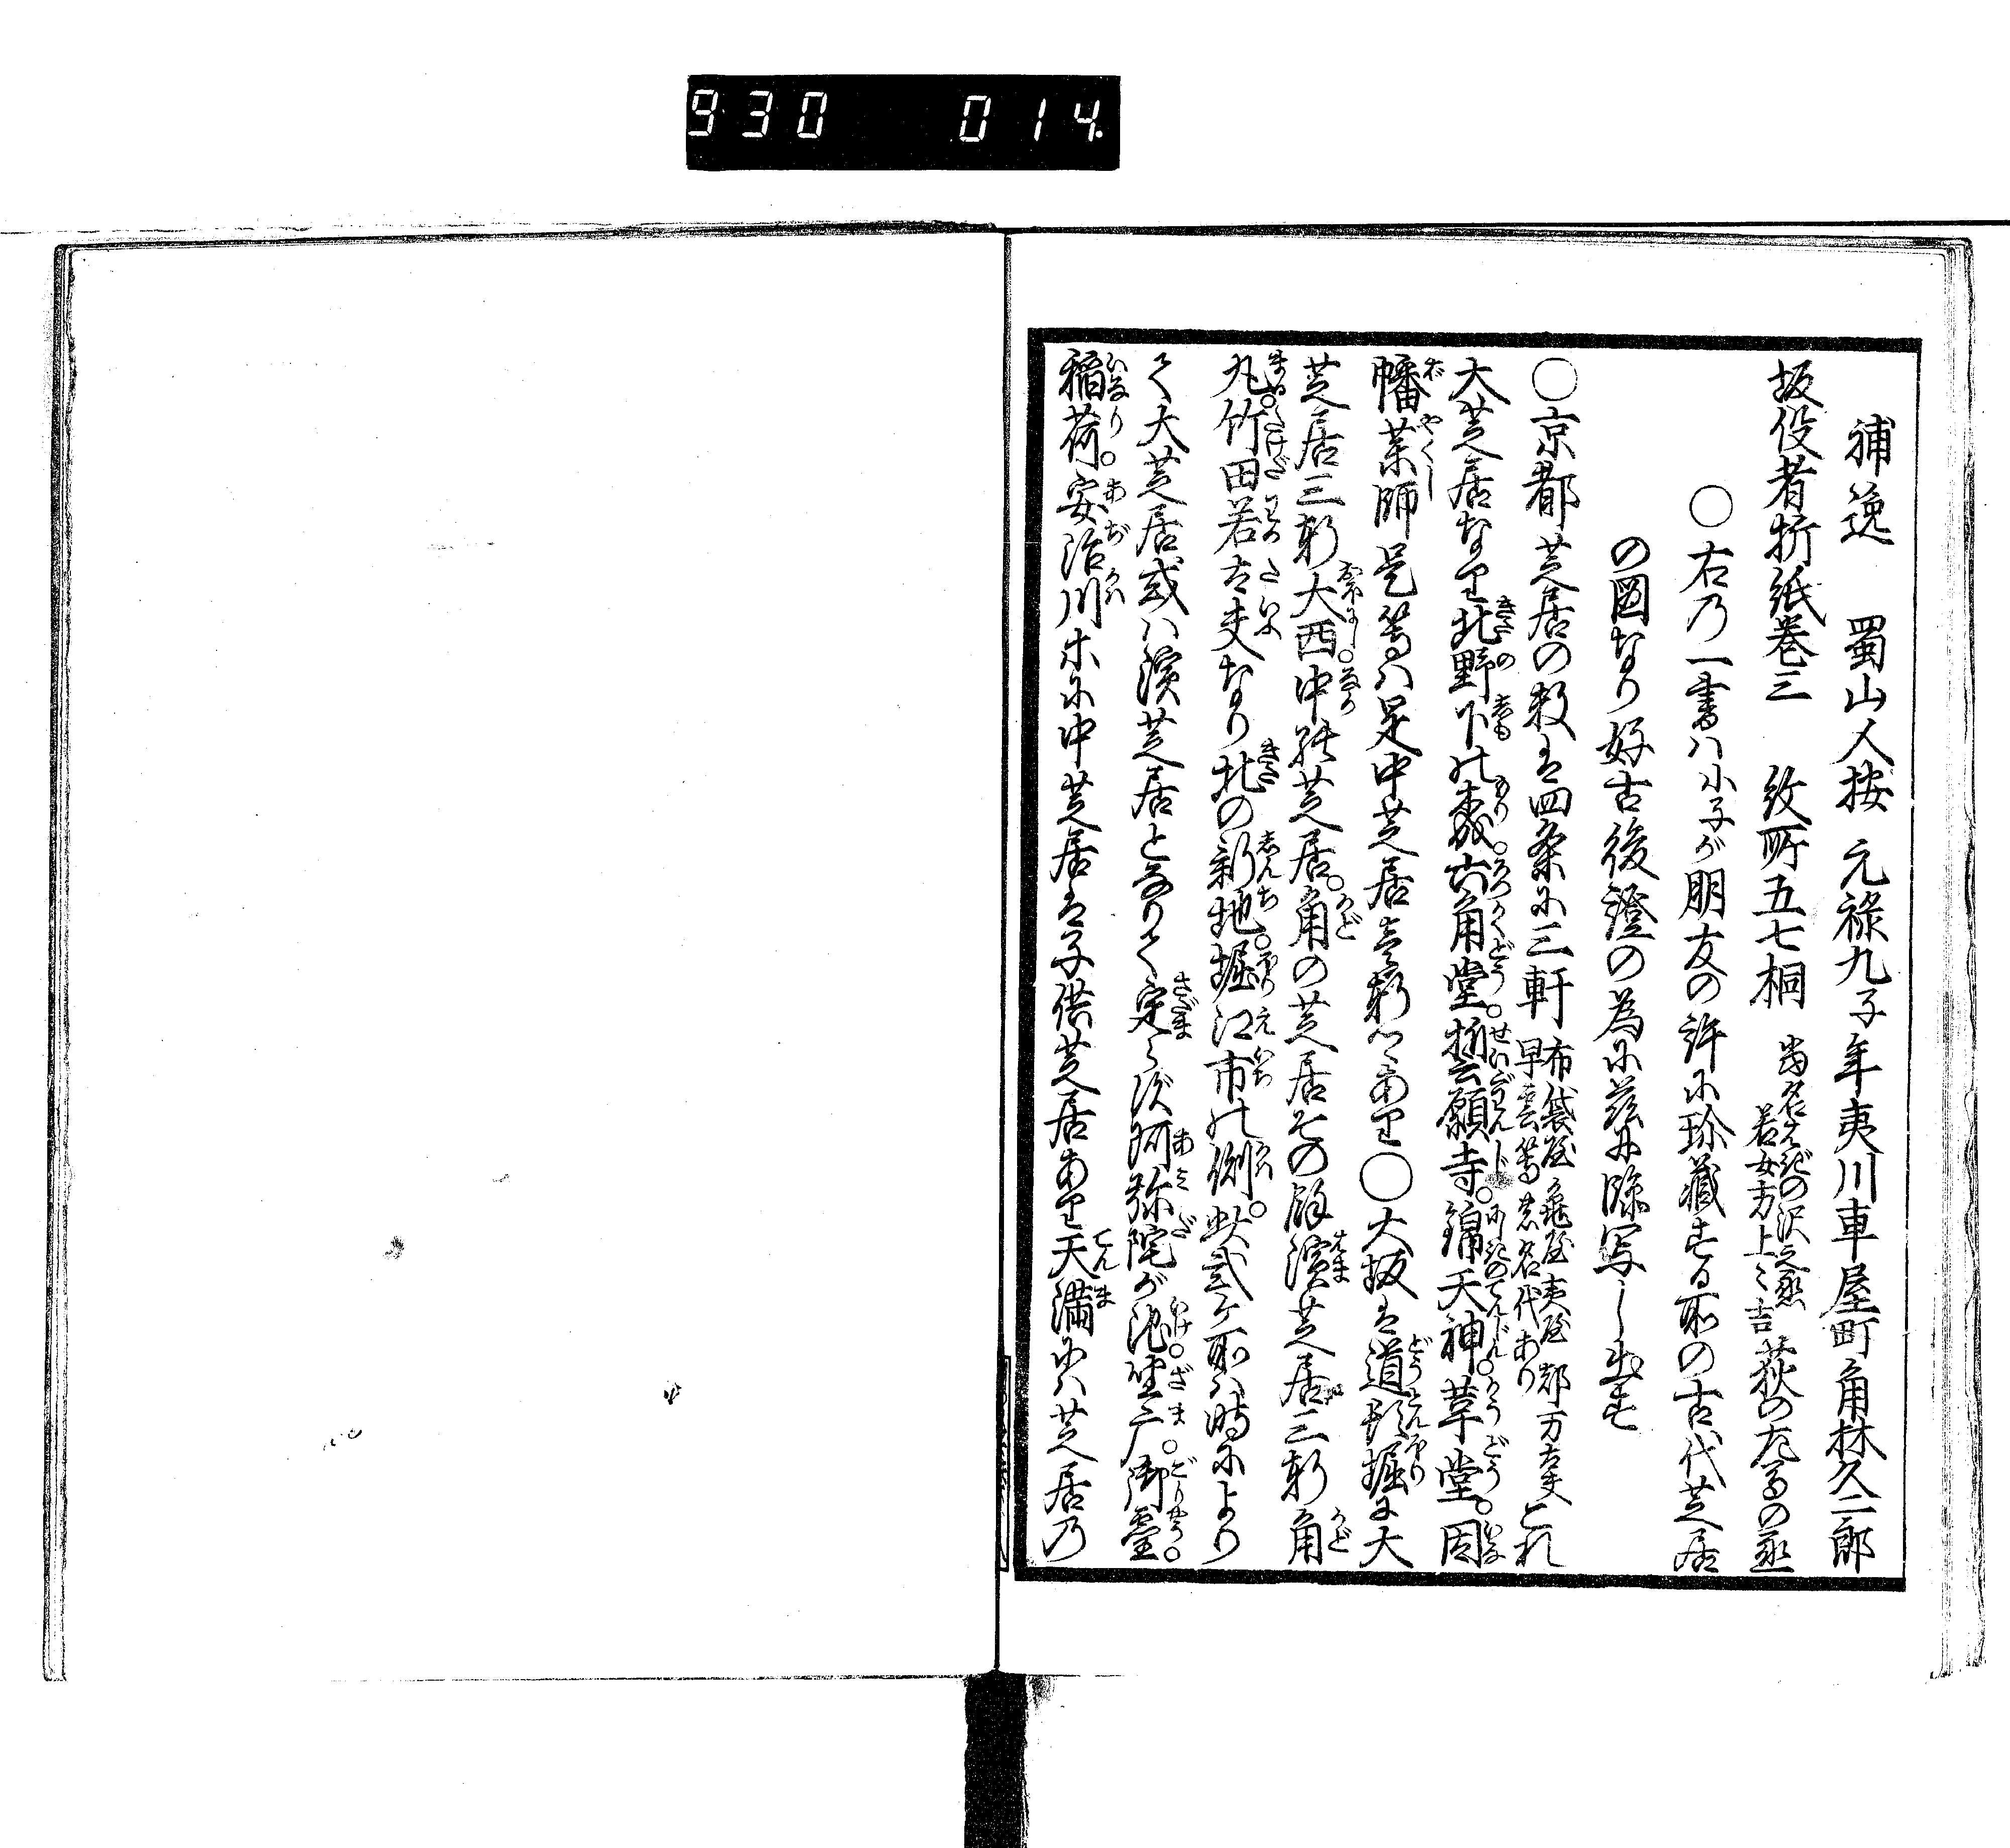 930 014
補逸 蜀山人按 元禄九子年夷川車屋町角林久二郎
坂役者折紙巻三 紋所五七桐 当名おぎの沢之丞 若女方上々吉 荻のたるの丞
○右乃一書ハ小子が朋友の許に珍蔵する所の古代芝居
の図なり好古後證の為に茲に臨写し出す
○京都芝居の数は四条に三軒 布袋屋亀屋夷屋都万太夫 早雲等名代あり これ
大芝居なり北野下の森。六角堂。誓願寺。錦天神。革堂。因
幡薬師是等ハ是中芝居壱軒づゝあり○大坂は道頓堀に大
芝居三軒大西。中の芝居。角の芝居その餘濱芝居三軒角
丸。竹田若太夫なり北の新地。堀江市の側。此弐ケ所ハ時により
て大芝居或ハ濱芝居となりて定らず阿弥陀が池。坐广。御霊。
稲荷。安治川ホに中芝居は子供芝居あり天満にハ芝居乃